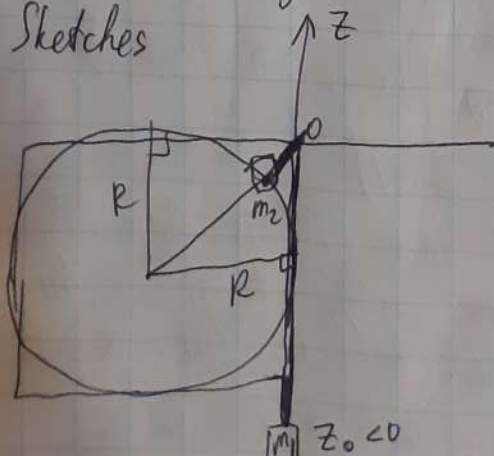 Sketches
Z
O
R
m₂
R
m₁ Z₀ <0